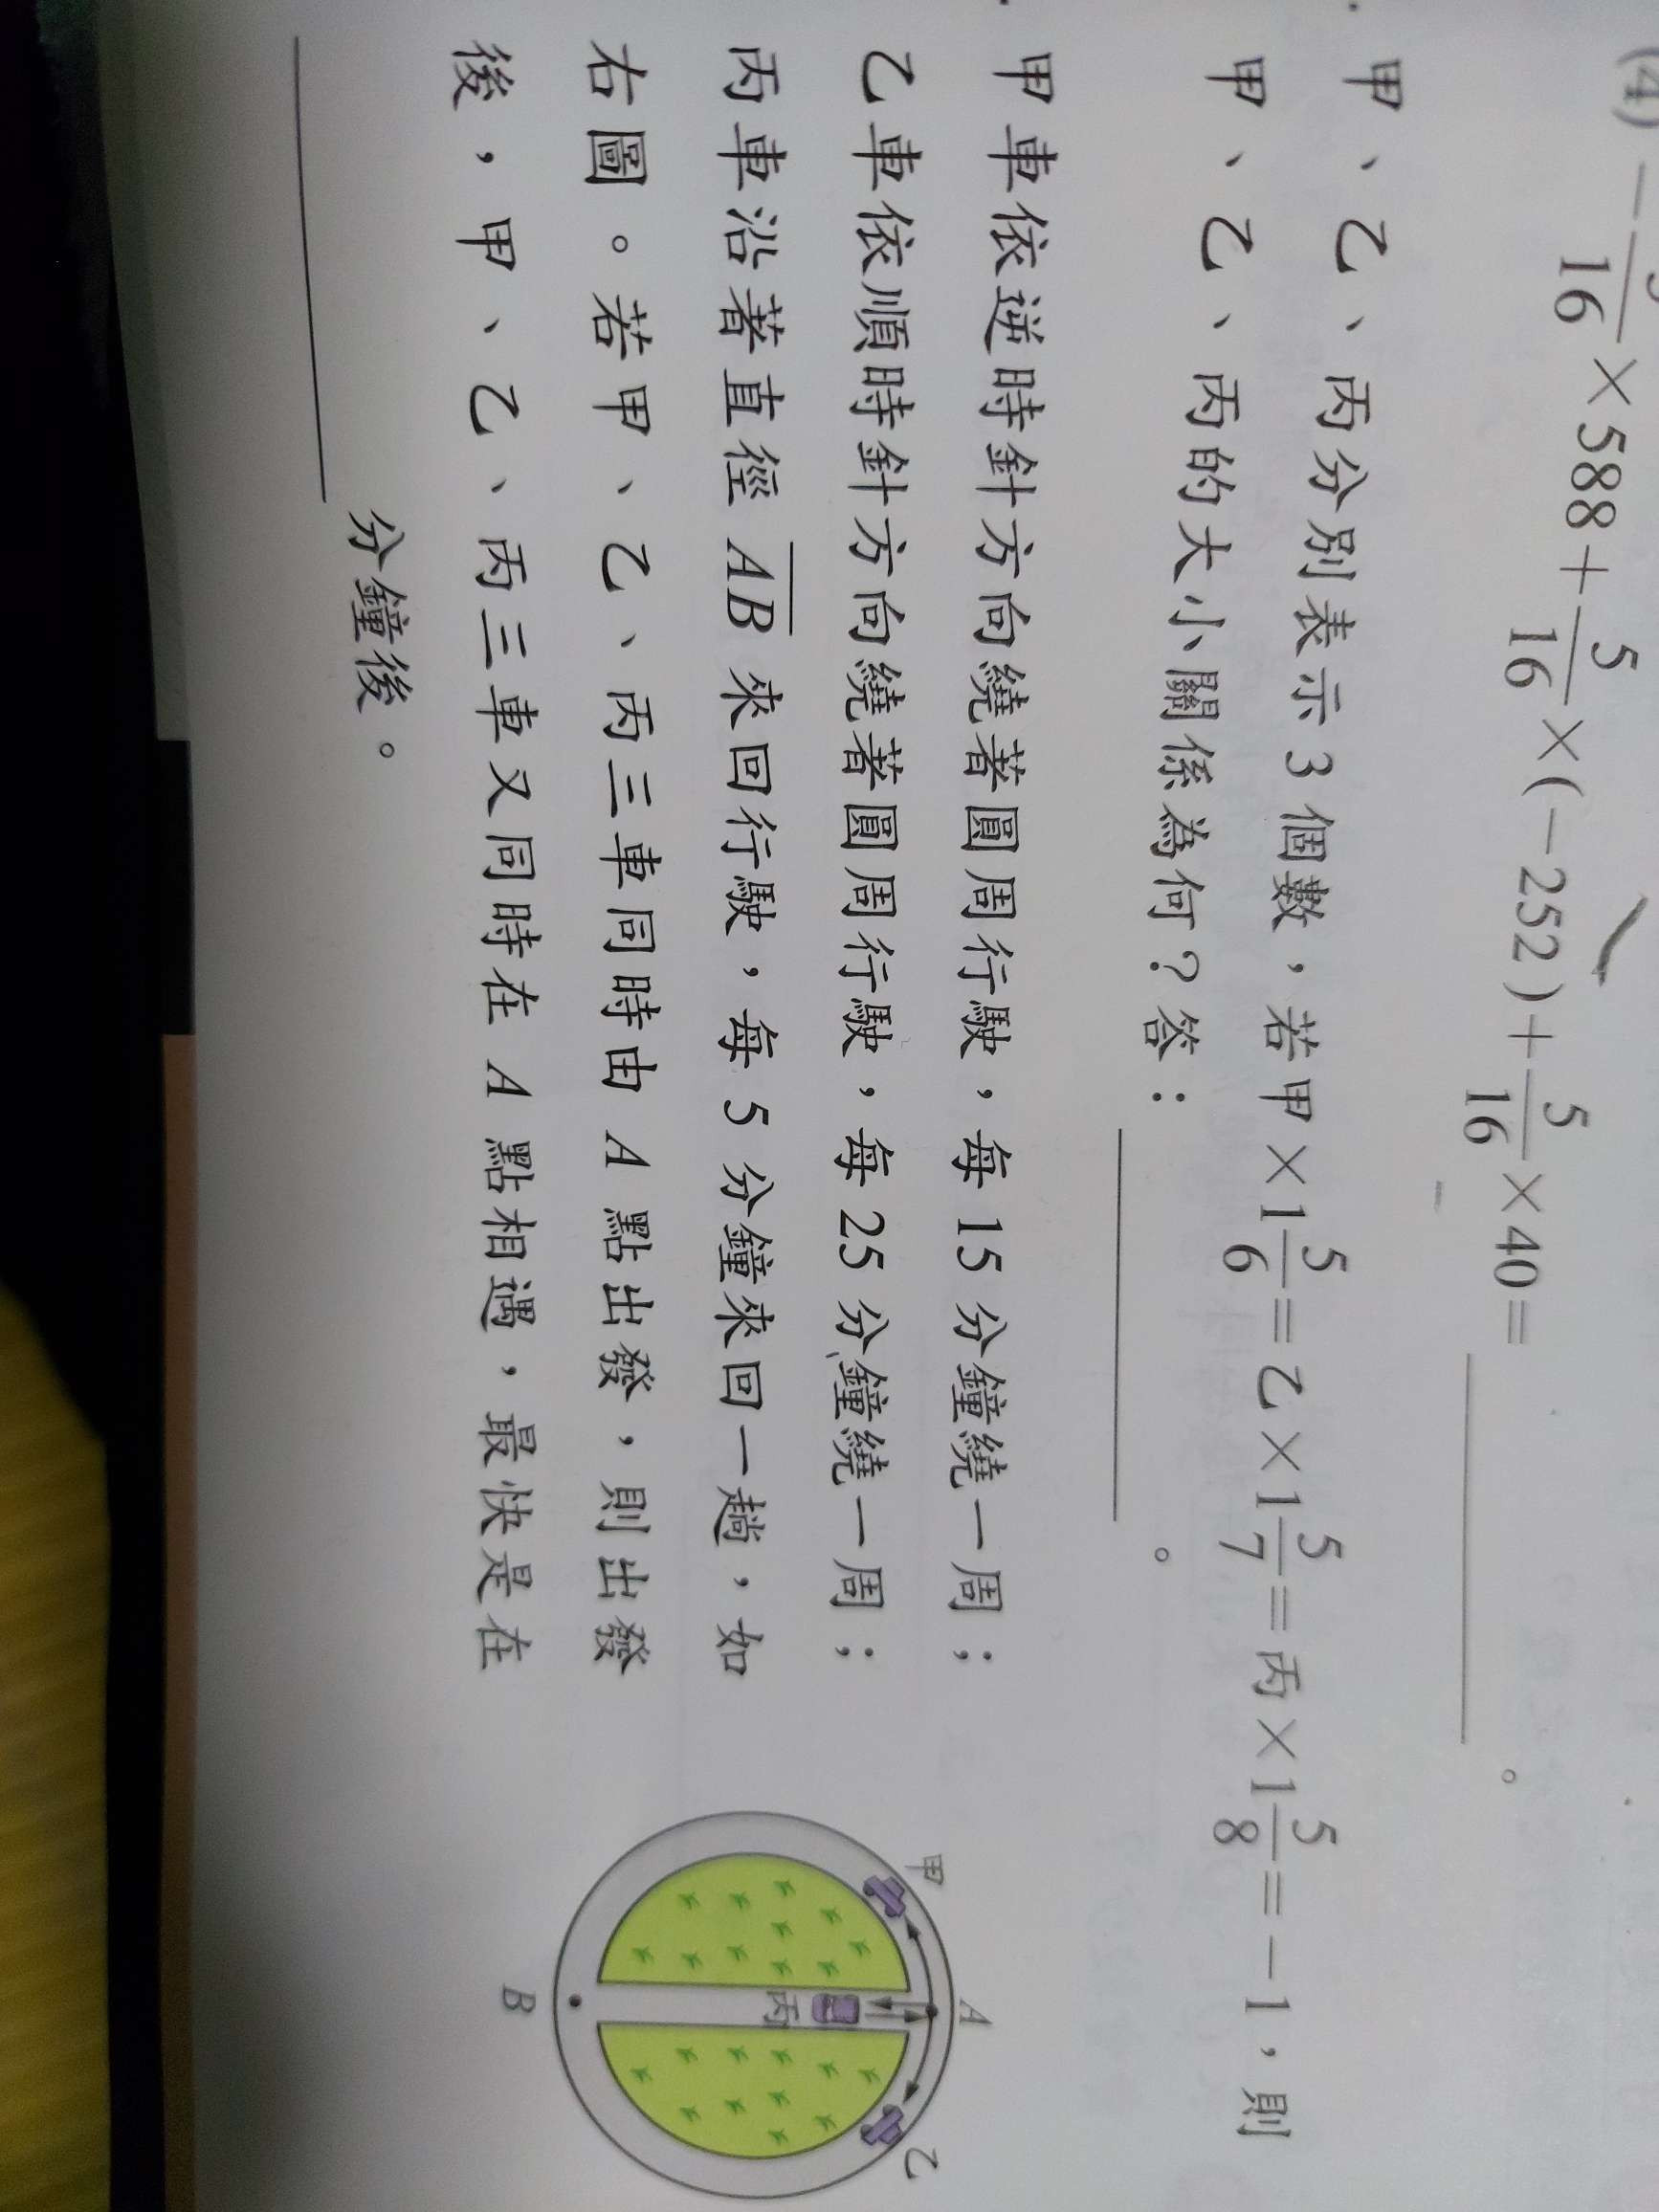 (4) －/16×588＋5/16×(－252)＋5/16×40＝________。
甲、乙、丙分別表示 3 個數，若甲×1 5/6＝乙×1 5/7＝丙×1 5/8＝－1，則
甲、乙、丙的大小關係為何？答：________。
甲車依逆時針方向繞著圓周行駛，每 15 分鐘繞一周；
乙車依順時針方向繞著圓周行駛，每 25 分鐘繞一周；
丙車沿著直徑 AB 來回行駛，每 5 分鐘來回一趟，如
右圖。若甲、乙、丙三車同時由 A 點出發，則出發
後，甲、乙、丙三車又同時在 A 點相遇，最快是在
________ 分鐘後。
A
甲
乙
丙
B